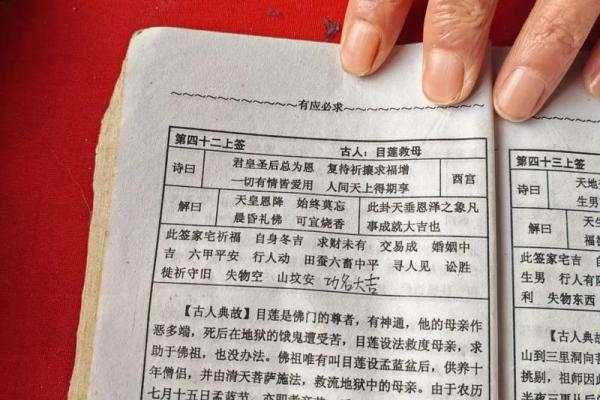 有应必求
第四十二上签 古人：目莲救母
诗曰 君皇圣后总为恩 复待祈攘求福增 酉宫
一切有情皆爱用 人间天上得期享
解曰 天皇恩降 始终莫忘 此卦天垂恩泽之象凡
晨昏礼佛 可宜烧香 事成就大吉也
此签家宅祈福 自身冬吉 求财未有 交易成 婚姻中
吉 六甲平安 行人动 田蚕六畜中平 寻人见 讼胜
徙祈守旧 失物空 山坟安 功名大吉
【古人典故】目莲是佛门的尊者，有神通，他的母亲作
恶多端，死后在地狱的饿鬼遭受苦，目莲设法救度母亲，求
助于佛祖，也没办法。佛祖唯有叫目莲设孟蓝盆后，供养十
年僧侣，并由清天菩萨施法，救流地狱中的母亲。由于农历
七月十五日孟蓝节，亦即孝
第四十三上签
诗曰 天地
生男
解曰 天生
福
此签家宅
生男 行人有
利 失物东西
【古人典故
山到三里洞前
挑剔，祖师因此
半夜三更从后